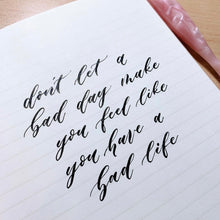 don't let a
bad day make
you feel like
you have a
bad life